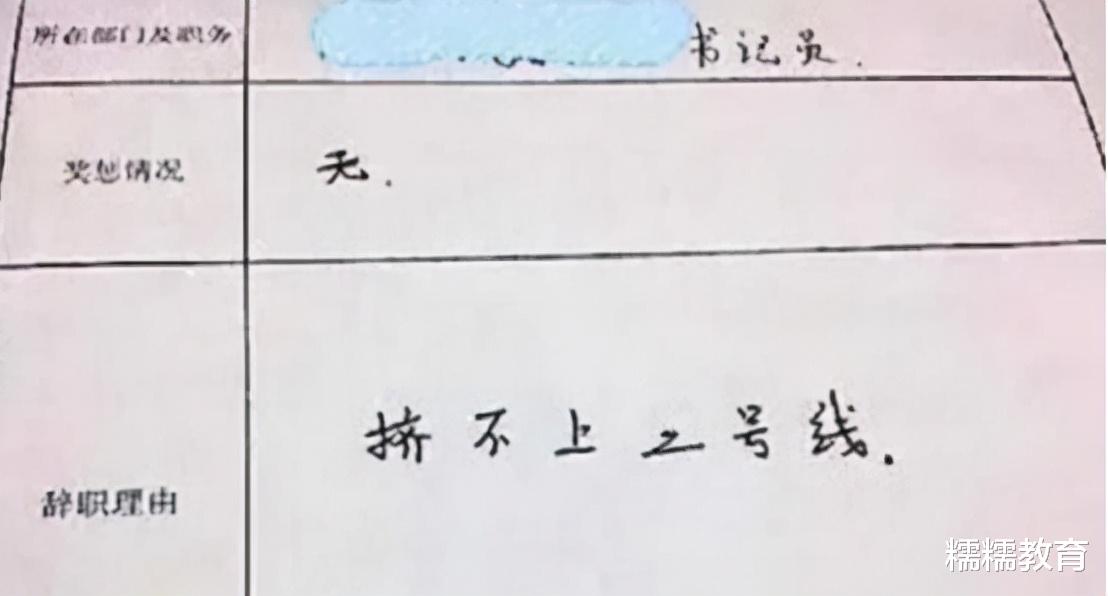 所在部门及职务 书记员.
奖惩情况 无.
辞职理由 挤不上2号线.
糯糯教育